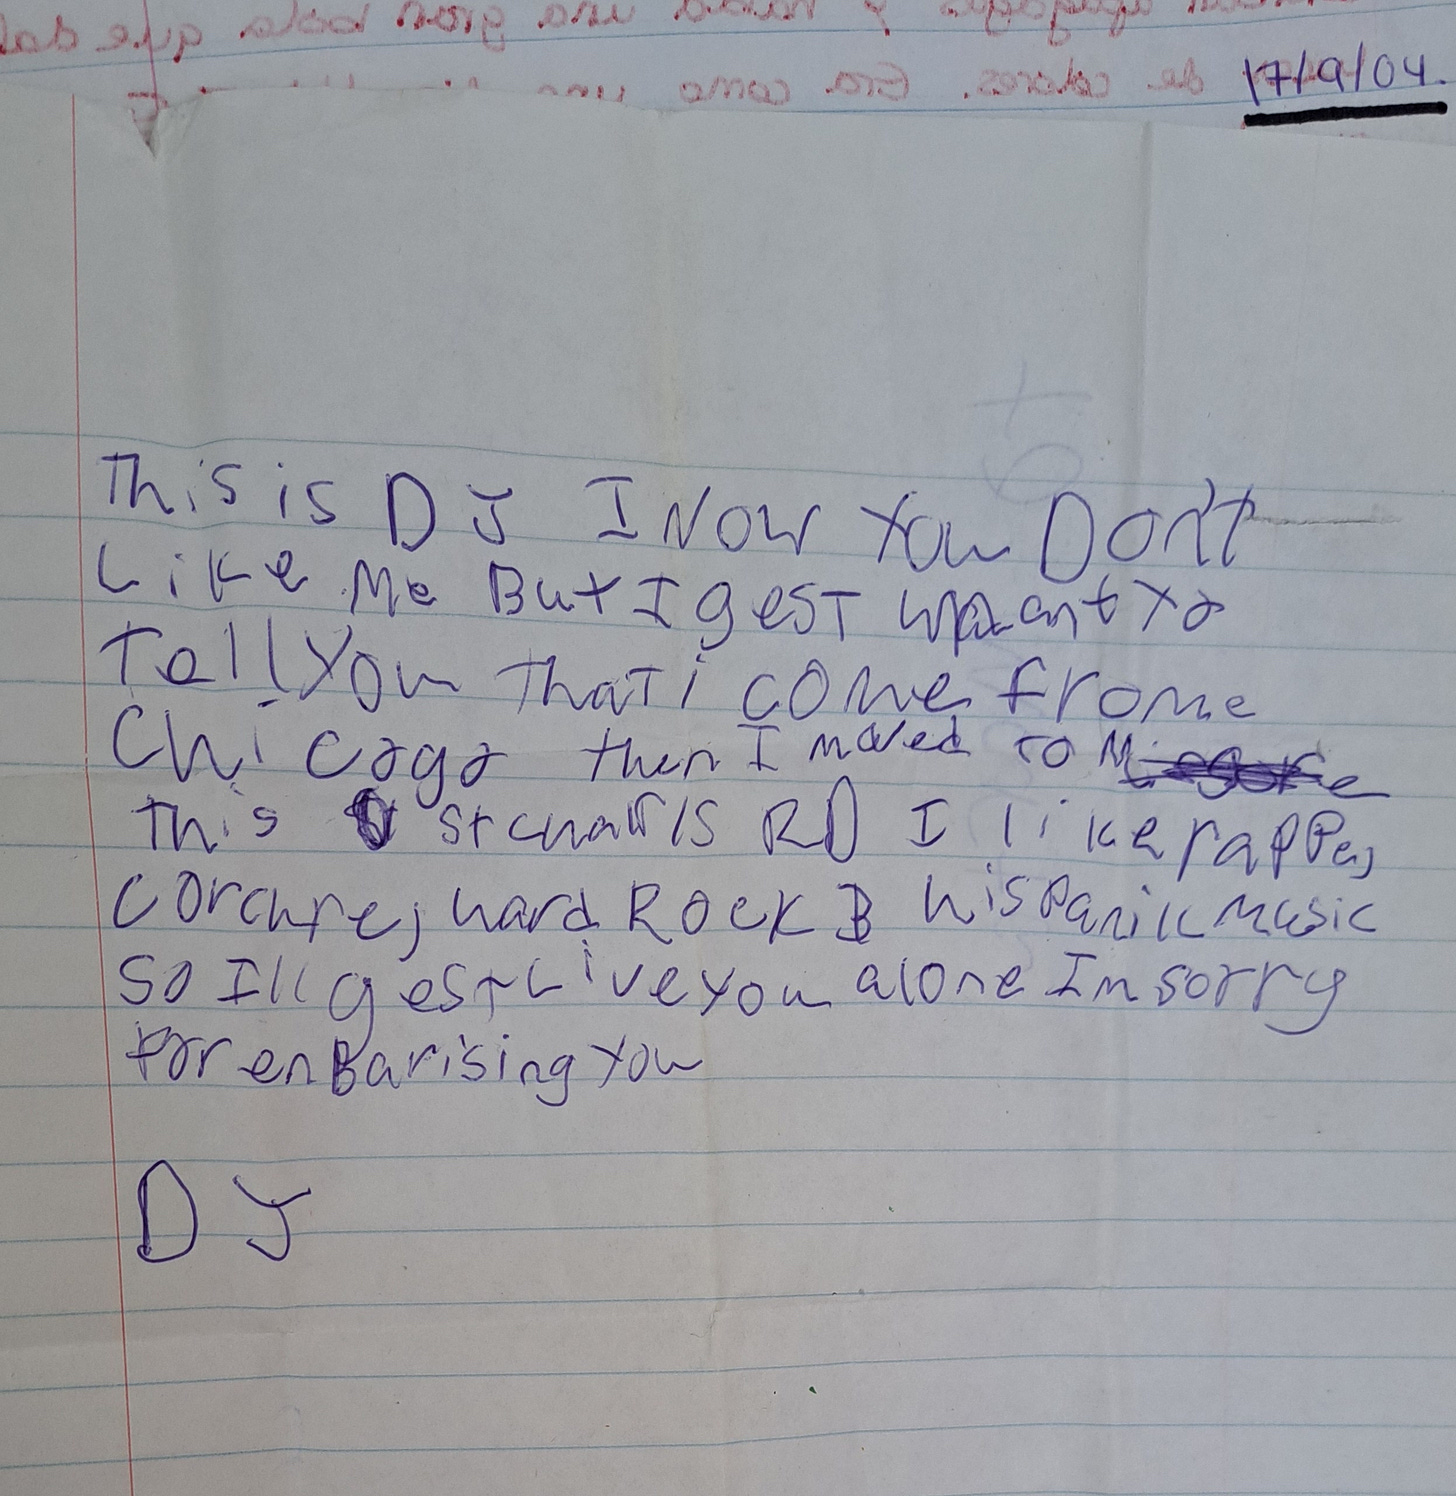 17/9/04.
This is DJ I NOW You Don't
Like Me But I gest want to
Tell You That i come frome
Chicago then I moved to
This St charls RD I like rapper,
corchre, hard Rock B hispanik music
So Ill gest Live you alone Im sorry
for enBarising you
DJ